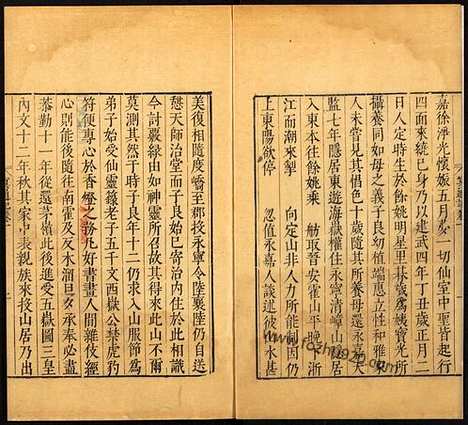 嘉徐淨光懷娠五月夢一切仙室中聖皆起行
四面來繞已身乃以建武四年丁丑歲正月二
日人定時生於餘姚明星里 為姨寶光所
攝養同如母之義子良幼植端惠立性和雅家
人未嘗見其慍色十歲隨其所養母還永嘉天
監七年隱居東遊海嶽權住永寧青嶂山隱居
入東本往餘姚乘 晉安霍山平晚下浙
江而潮來掣 向定山非人力所能制因仍
上東陽欲停 忽值永嘉人談述彼山水甚
美復相隨度嶠至郡投永寧令陸襄陸仍自送
憩天師治堂而子良始已寄治內住於此相識
今討嚴緣由如神靈所召故其得來此山不爾
莫測其然時子良年十二仍求入山服節為
弟子始受仙靈籙老子五千文西嶽公禁虎豹
符便專心於香燈之務凡好書畫人間雜伎經
心則能後隨往南霍及反木溜旦夕承奉必盡
恭勤十一年從還茅嶺此後進受五嶽圖三皇
內文十二年秋其家中表親族來投山居乃出